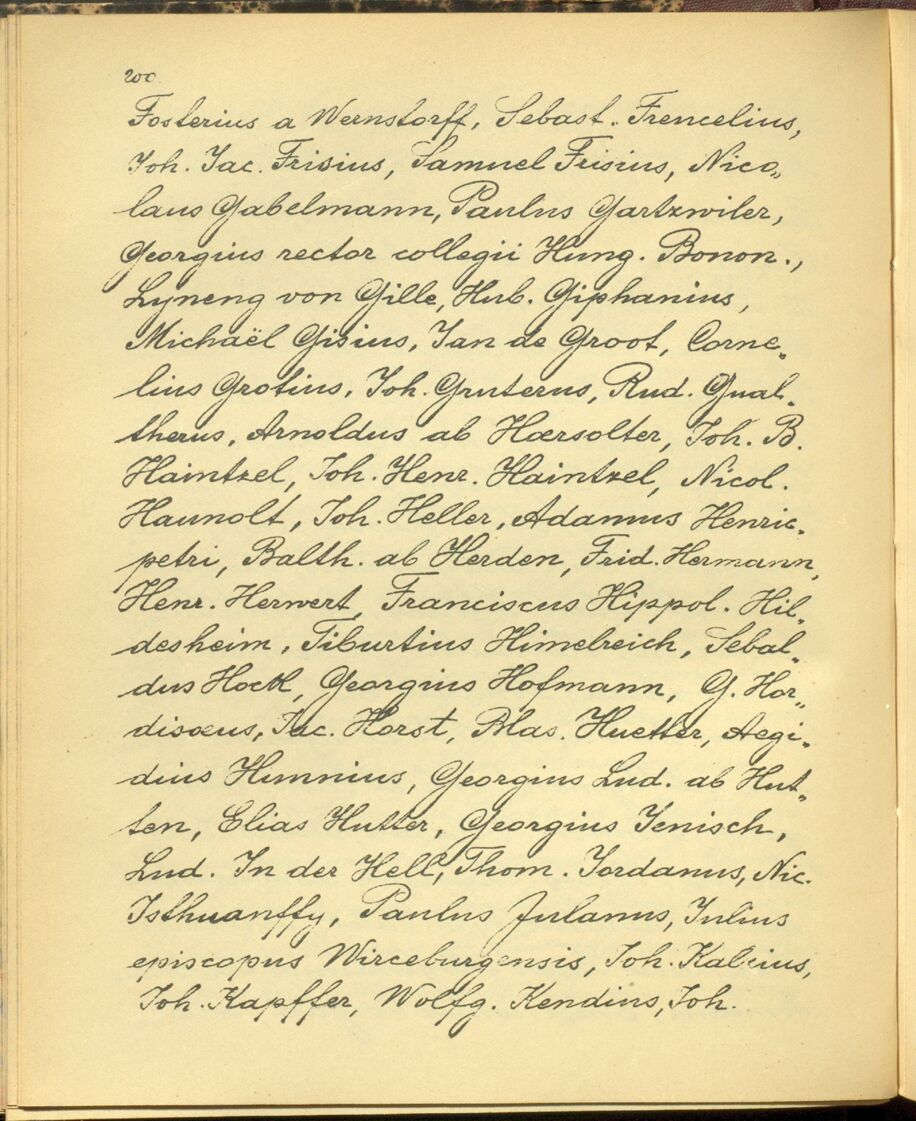 200.
Fosterius a Wernstorff, Sebast. Frencelius,
Joh. Jac. Frisius, Samuel Frisius, Nico„
laus Gabelmann, Paulus Gartzwiler,
Georgius rector collegii Hung. Bonon.,
Lyneng von Gille, Hub. Giphanius,
Michaël Gisius, Jan de Groot, Corne„
lius Grotius, Joh. Gruterus, Rud. Gual„
therus, Arnoldus ab Hærsolter, Joh. B.
Haintzel, Joh. Henr. Haintzel, Nicol.
Haunolt, Joh. Heller, Adamus Henric„
petri, Balth. ab Herden, Frid. Hermann,
Henr. Herwert, Franciscus Hippol. Hil„
desheim, Tiburtius Himelreich, Sebal„
dus Hock, Georgius Hofmann, G. Hor„
disœus, Jac. Horst, Blas. Huetter, Aegi„
dius Hunnius, Georgius Lud. ab Hut„
ten, Elias Hutter, Georgius Jenisch,
Lud. In der Hell, Thom. Jordanus, Nic.
Isthuanffy, Paulus Julanus, Julius
episcopus Wirceburgensis, Joh. Kalcius,
Joh. Kapffer, Wolfg. Kendius, Joh.